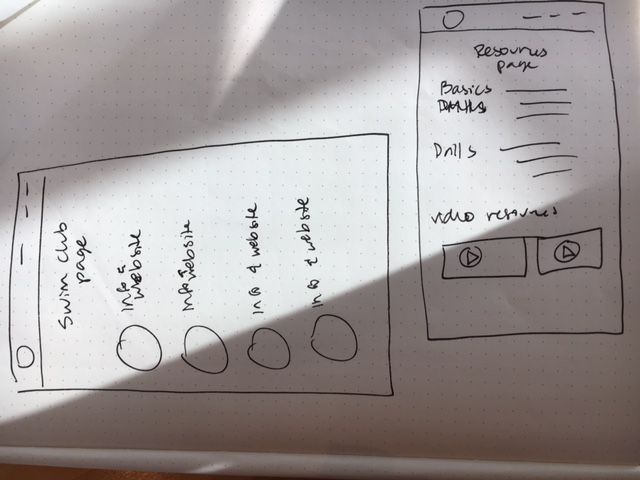 Swim club
page
Info &
Website
Info &
website
Info & website
Info & website
Resources
page
Basics
Drills
video resources